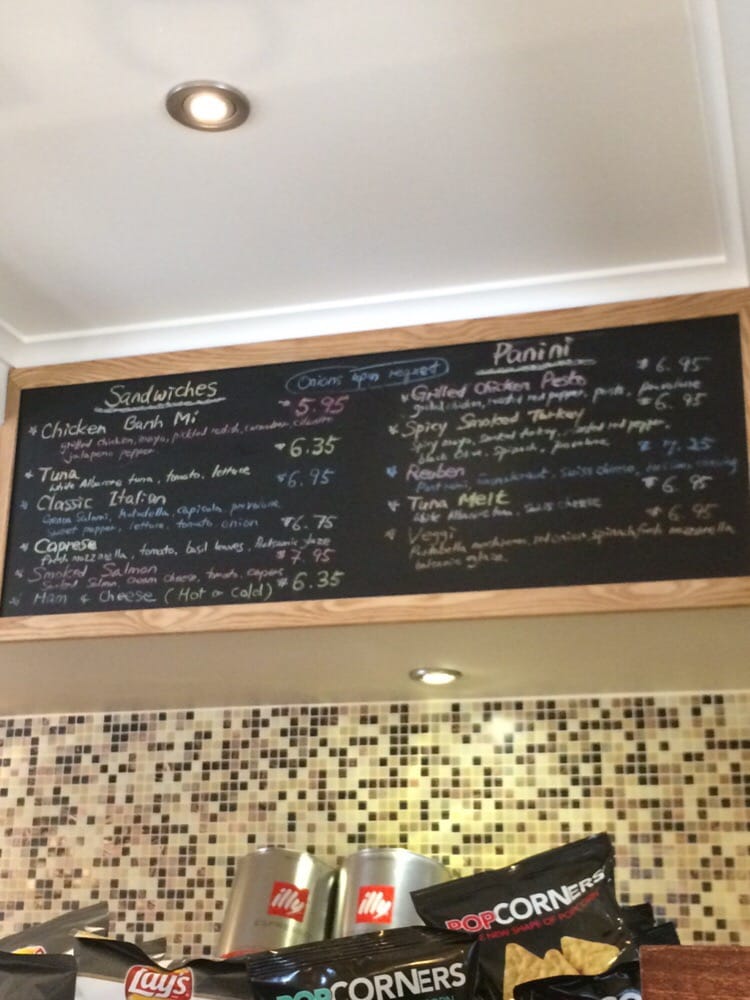 Sandwiches
Onions upon request
* Chicken Banh Mi $5.95
grilled chicken, mayo, pickled radish, cucumber, cilantro
jalapeno pepper
* Tuna $6.35
White Albacore tuna, tomato, lettuce
* Classic Italian $6.95
Genoa Salami, Mortadella, capicola, provolone
sweet pepper, lettuce, tomato onion
* Caprese $6.75
fresh mozzarella, tomato, basil leaves, Balsamic glaze
* Smoked Salmon $7.95
Smoked Salmon, cream cheese, tomato, capers
* Ham & Cheese (Hot or Cold) $6.35
Panini
* Grilled Chicken Pesto $6.95
grilled chicken, roasted red pepper, pesto, provolone
* Spicy Smoked Turkey $6.95
Spicy mayo, smoked turkey, roasted red pepper,
black olive, spinach, provolone
* Reuben $7.25
Pastrami, sauerkraut, Swiss cheese,
* Tuna Melt $6.95
White Albacore tuna, Swiss cheese
* Veggi $6.95
Portobello mushroom, red onion, spinach, fresh mozzarella
balsamic glaze
illy
ESPRESSO
illy
POPCORNERS
NEW SHAPE OF POPCORN
Lay's
POPCORNERS